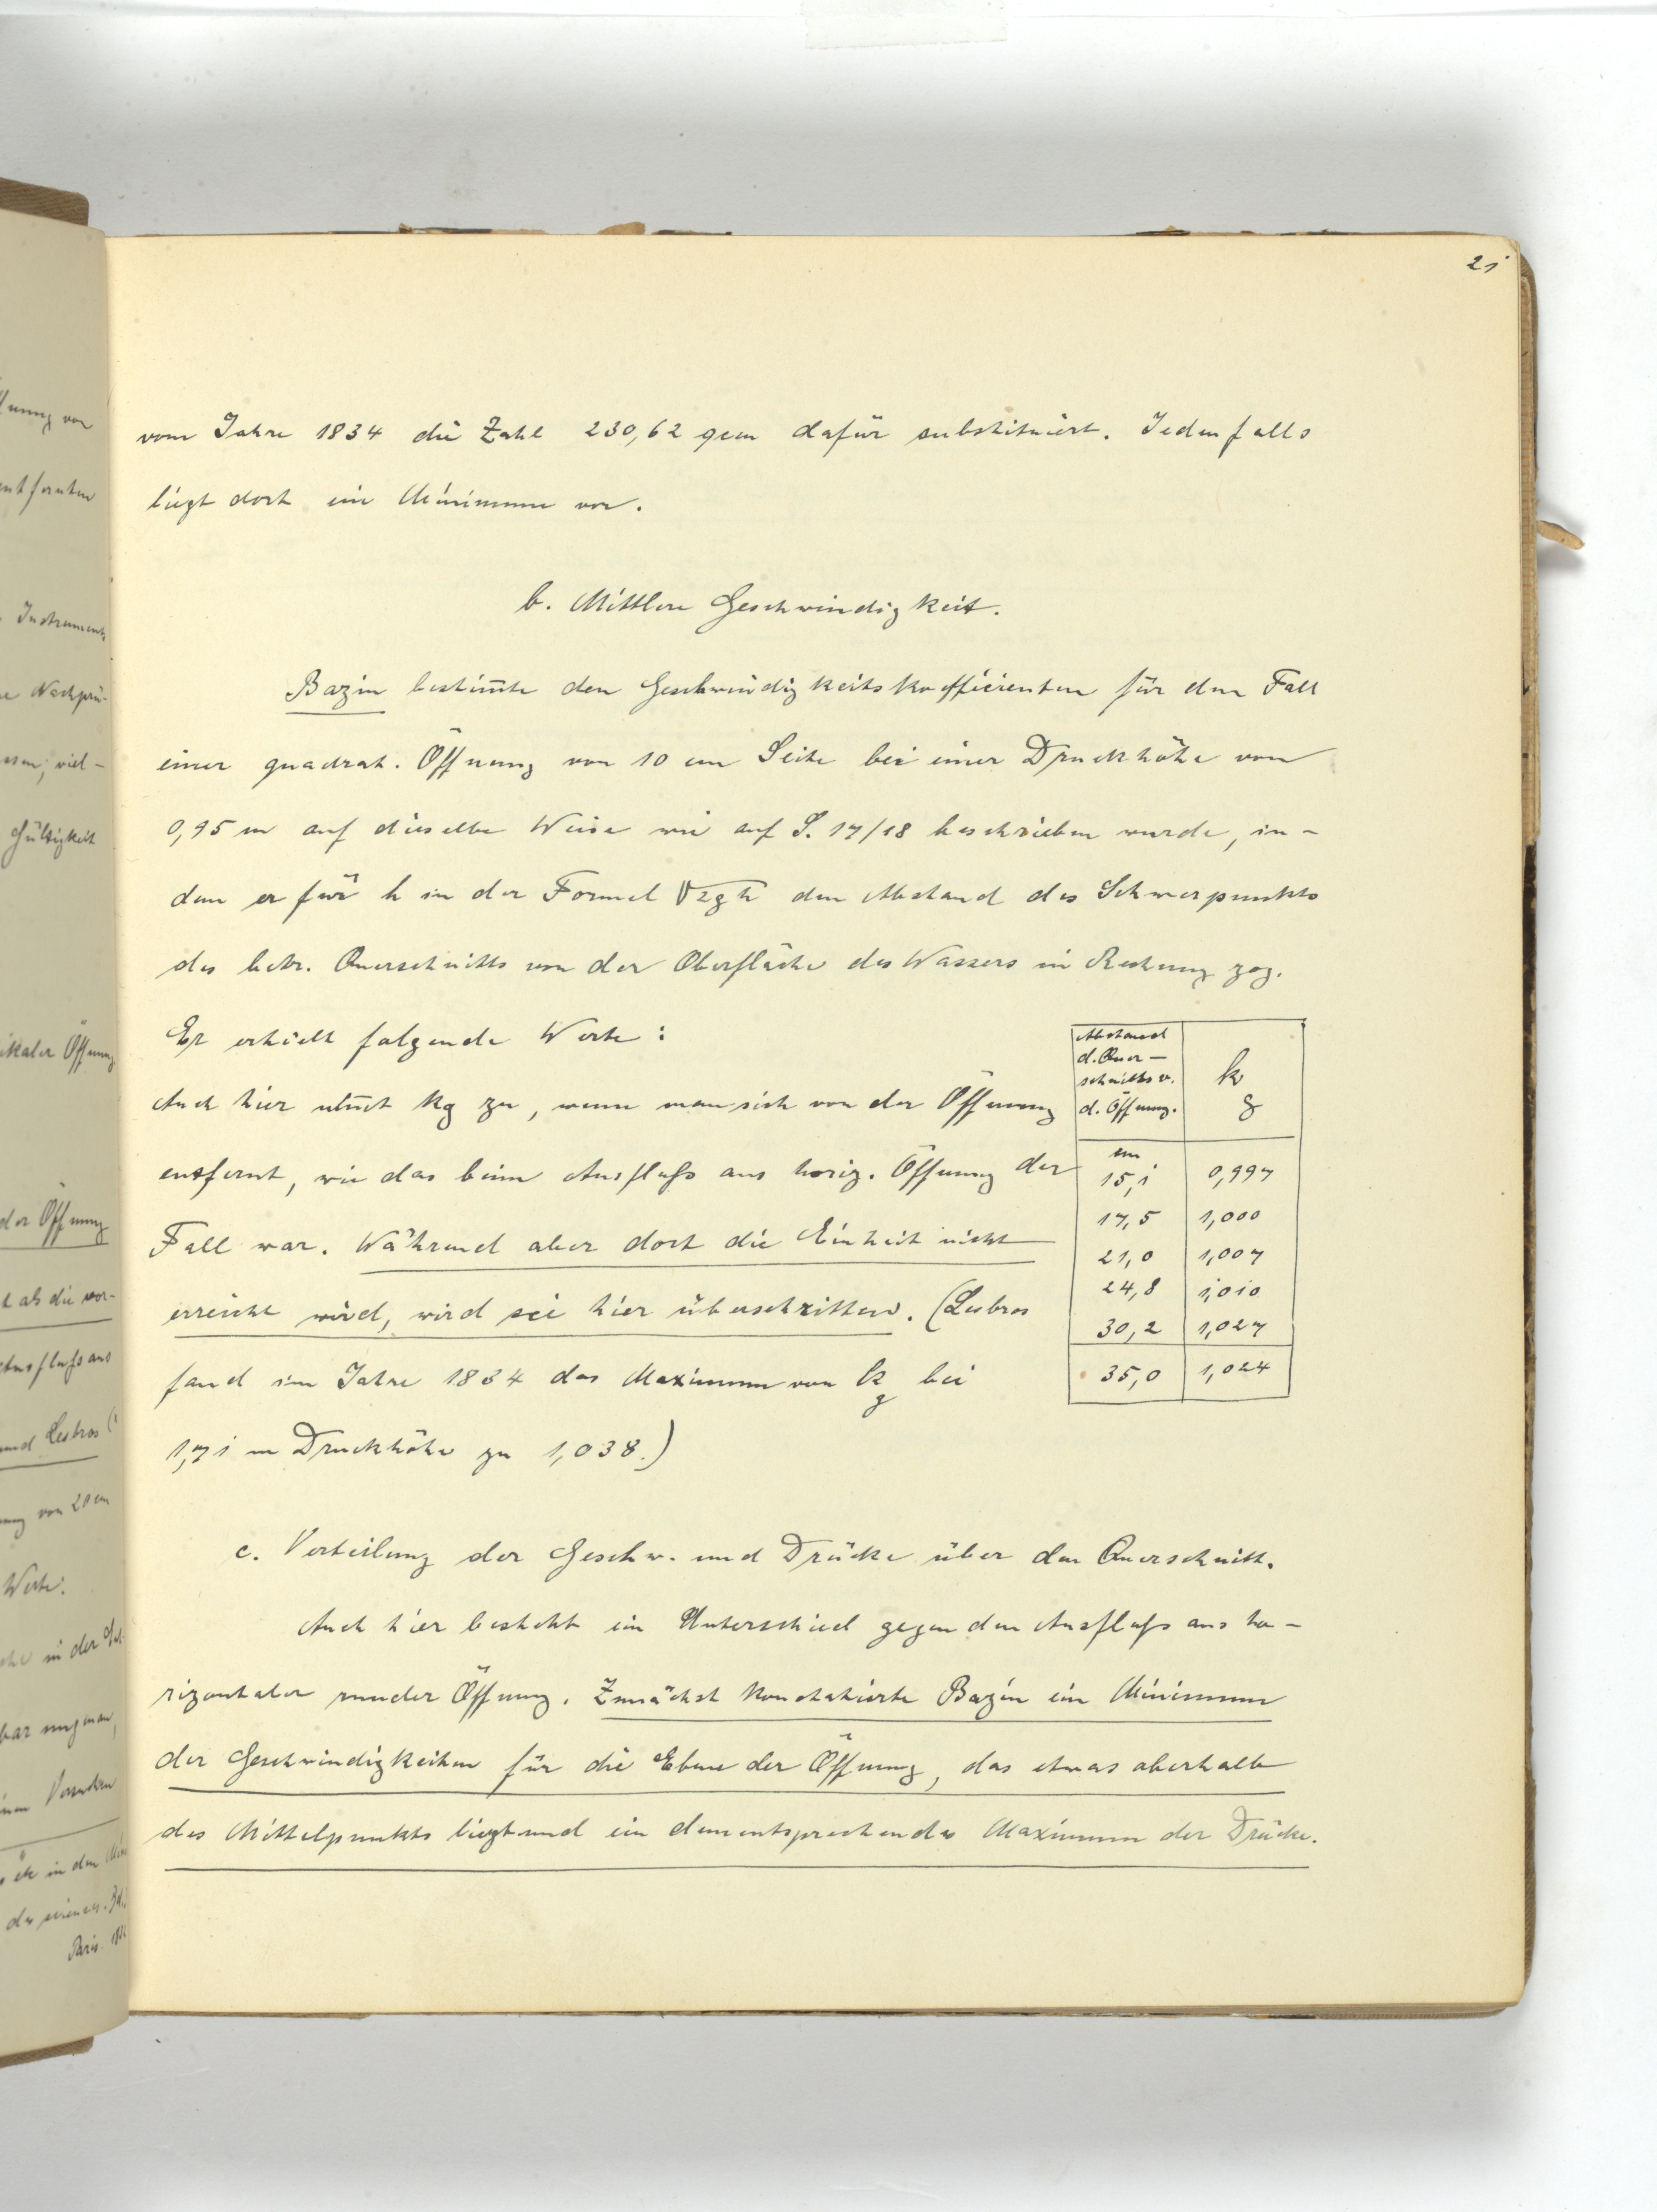 21
vom Jahre 1834 die Zahl 230,62 qcm dafür substituiert. Jedenfalls
liegt dort ein Minimum vor.
b. Mittlere Geschwindigkeit.
Bazin bestim̄te den Geschwindigkeitskoefficienten für den Fall
einer quadrat. Öffnung von 10 cm Seite bei einer Druckhöhe von
0,95 m auf dieselbe Weise wie auf S. 17/18 beschrieben wurde, in-
dem er für h in der Formel √2gh den Abstand des Schwerpunkts
des betr. Querschnitts von der Oberfläche des Wassers in Rechnung zog.
Er erhielt folgende Werte:
Auch hier nim̄t kg zu, wenn man sich von der Öffnung
entfernt, wie das beim Ausfluß aus horiz. Öffnung der
Fall war. Während aber dort die Einheit nicht
erreicht wird, wird sie hier überschritten. (Lesbros
fand im Jahre 1834 das Maximum von kg bei
1,71 m Druckhöhe zu 1,038.)
Abstand
d. Quer-
schnitts v.
d. Öffnung.
kg
cm
15,1 0,997
17,5 1,000
21,0 1,007
24,8 1,010
30,2 1,027
35,0 1,024
c. Verteilung der Geschw. und Drücke über den Querschnitt.
Auch hier besteht ein Unterschied gegen den Ausfluß aus ho-
rizontaler runder Öffnung. Zunächst konstatierte Bazin ein Minimum
der Geschwindigkeiten für die Ebene der Öffnung, das etwas oberhalb
des Mittelpunkts liegt und ein dementsprechendes Maximum der Drücke.